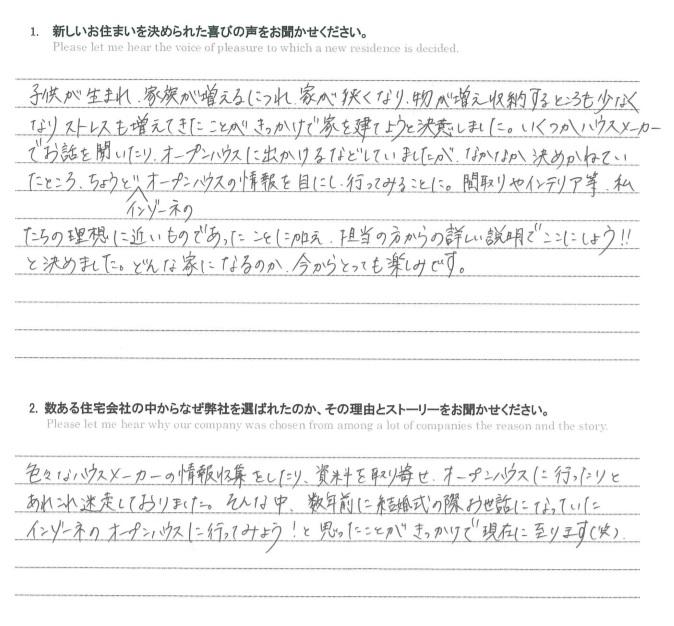 1. 新しいお住まいを決められた喜びの声をお聞かせください。
Please let me hear the voice of pleasure to which a new residence is decided.
子供が生まれ、家族が増えるにつれ、家が狭くなり、物が増え収納するところも少なく
なりストレスも増えてきたことがきっかけで家を建てようと決意しました。いくつかハウスメーカー
でお話を聞いたり、オープンハウスに出かけるなどしていましたが、なかなか決めかねてい
たところ、ちょうどオープンハウスの情報を目にし、行ってみることに。間取りやインテリア等、私
インゾーネの
たちの理想に近いものであったことに加え、担当の方からの詳しい説明でここにしよう!!
と決めました。どんな家になるのか、今からとっても楽しみです。
2. 数ある住宅会社の中からなぜ弊社を選ばれたのか、その理由とストーリーをお聞かせください。
Please let me hear why our company was chosen from among a lot of companies the reason and the story.
色々なハウスメーカーの情報収集をしたり、資料を取り寄せ、オープンハウスに行ったりと
あれこれ迷走しておりました。そんな中、数年前に結婚式の際お世話になっていた
インゾーネのオープンハウスに行ってみよう!と思ったことがきっかけで現在に至ります(笑)。